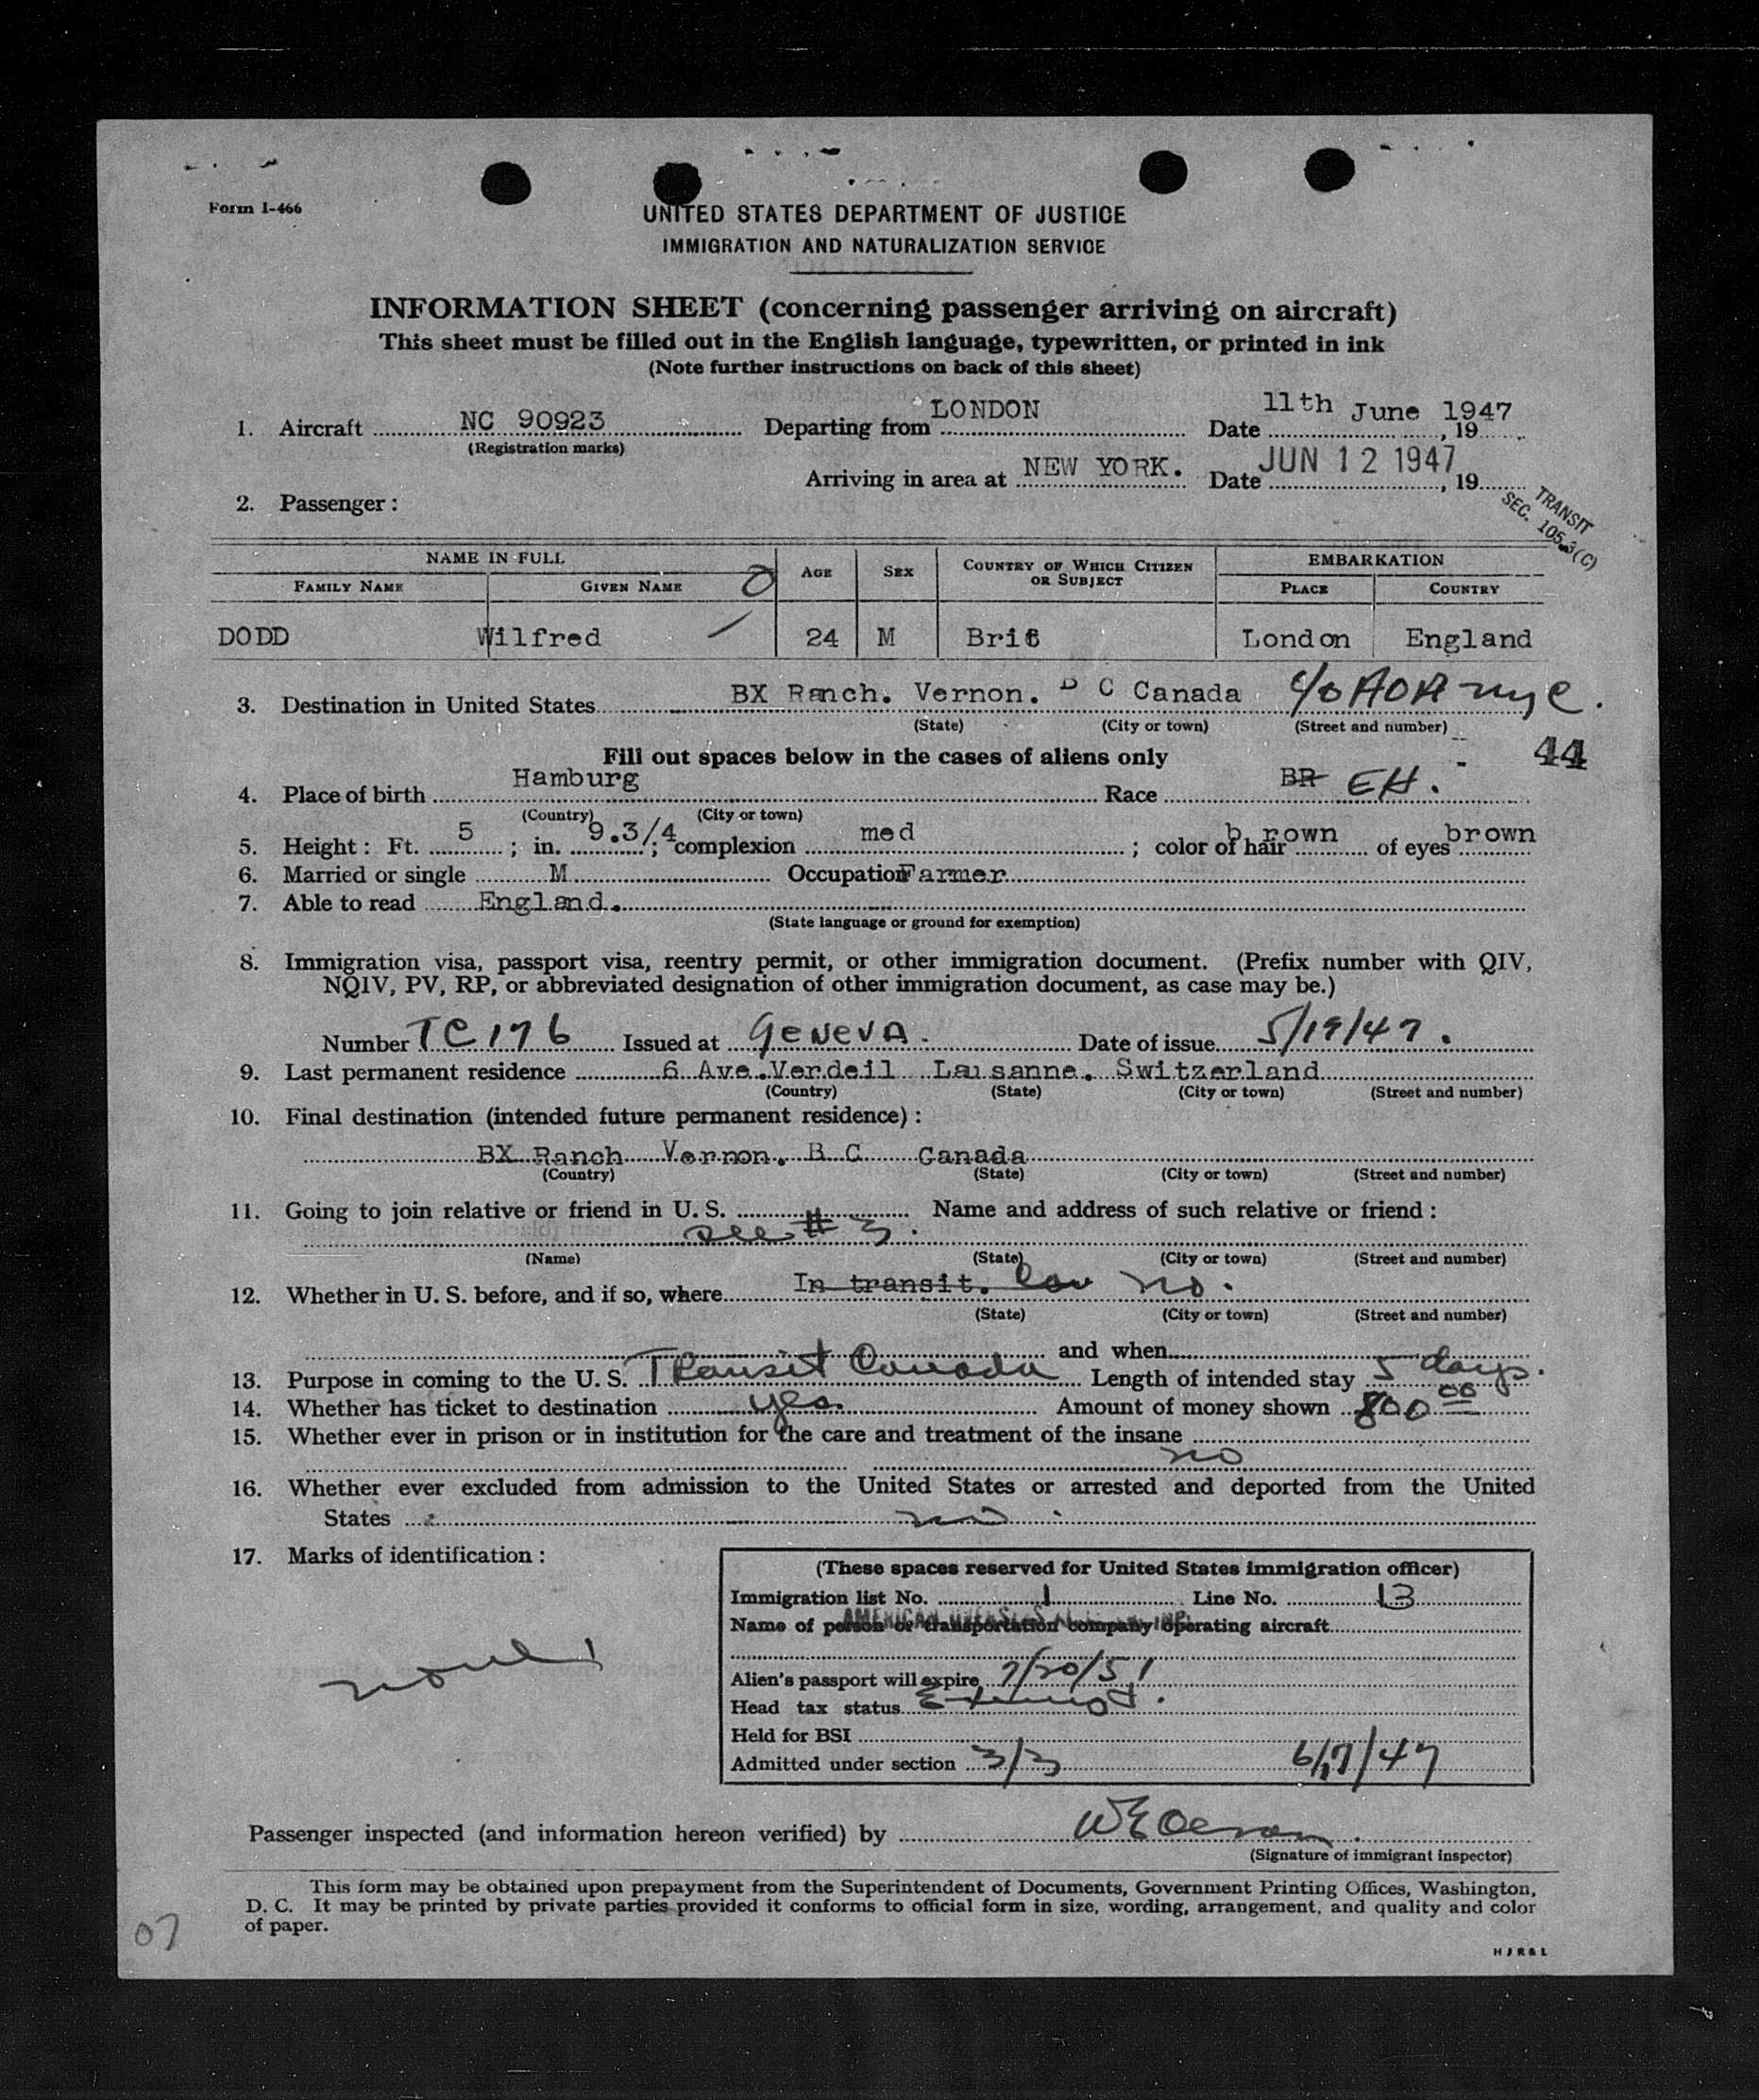 Form I-466
UNITED STATES DEPARTMENT OF JUSTICE
IMMIGRATION AND NATURALIZATION SERVICE
INFORMATION SHEET (concerning passenger arriving on aircraft)
This sheet must be filled out in the English language, typewritten, or printed in ink
(Note further instructions on back of this sheet)
1. Aircraft NC 90923 Departing from LONDON Date 11th June 1947, 19
(Registration marks)
Arriving in area at NEW YORK. Date JUN 12 1947, 19
TRANSIT
SEC. 105.3(C)
2. Passenger:
NAME IN FULL AGE SEX COUNTRY OF WHICH CITIZEN OR SUBJECT EMBARKATION
FAMILY NAME GIVEN NAME PLACE COUNTRY
DODD Wilfred 24 M Brit London England
3. Destination in United States BX Ranch. Vernon. B C Canada c/o AOA nyc.
(State) (City or town) (Street and number)
Fill out spaces below in the cases of aliens only 44
4. Place of birth Hamburg Race BR EH.
(Country) (City or town)
5. Height: Ft. 5; in. 9.3/4; complexion med; color of hair brown of eyes brown
6. Married or single M Occupation Farmer
7. Able to read England.
(State language or ground for exemption)
8. Immigration visa, passport visa, reentry permit, or other immigration document. (Prefix number with QIV,
NQIV, PV, RP, or abbreviated designation of other immigration document, as case may be.)
Number TC 176 Issued at Geneva. Date of issue 5/19/47.
9. Last permanent residence 6 Ave.Verdeil Lausanne. Switzerland
(Country) (State) (City or town) (Street and number)
10. Final destination (intended future permanent residence):
BX Ranch Vernon. B C Canada
(Country) (State) (City or town) (Street and number)
11. Going to join relative or friend in U. S. Name and address of such relative or friend:
see # 3.
(Name) (State) (City or town) (Street and number)
12. Whether in U. S. before, and if so, where In transit. no.
(State) (City or town) (Street and number)
and when
13. Purpose in coming to the U. S. Transit Canada Length of intended stay 5 days.
14. Whether has ticket to destination yes. Amount of money shown 800 00
15. Whether ever in prison or in institution for the care and treatment of the insane
no
16. Whether ever excluded from admission to the United States or arrested and deported from the United
States no
17. Marks of identification:
none
(These spaces reserved for United States immigration officer)
Immigration list No. 1 Line No. 13
AMERICAN OVERSEAS
Name of person or transportation company operating aircraft
Alien's passport will expire 7/20/51
Head tax status Exempt.
Held for BSI
Admitted under section 3/3 6/17/47
Passenger inspected (and information hereon verified) by
(Signature of immigrant inspector)
This form may be obtained upon prepayment from the Superintendent of Documents, Government Printing Offices, Washington,
D. C. It may be printed by private parties provided it conforms to official form in size, wording, arrangement, and quality and color
of paper.
07
H J R & L